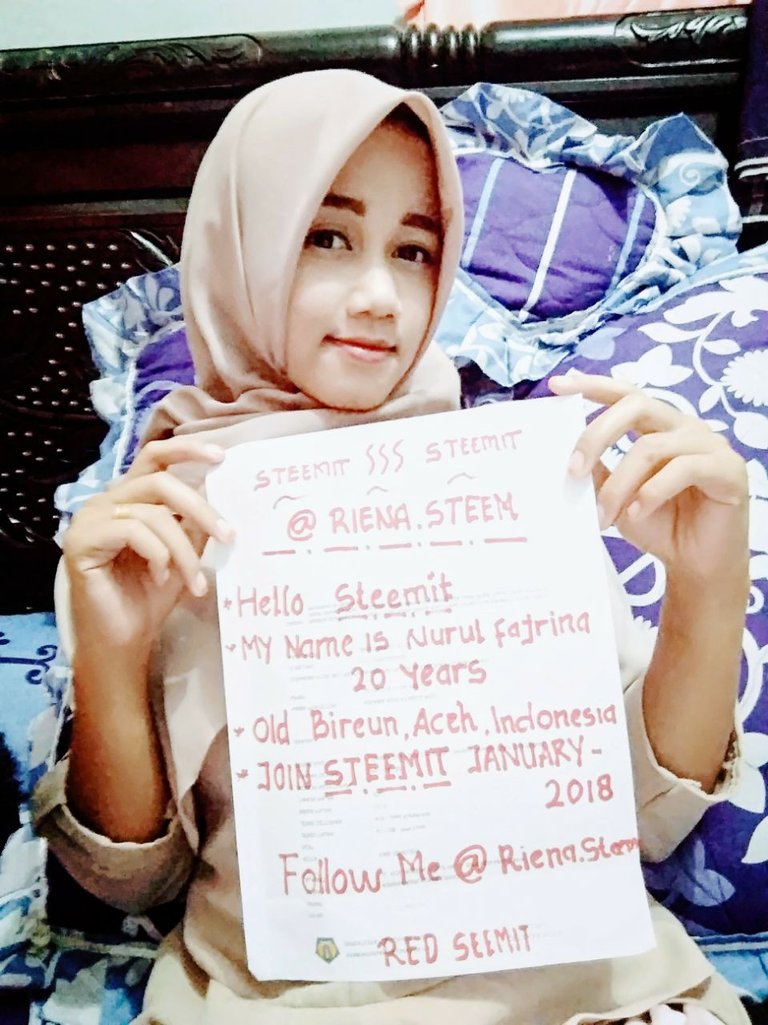 STEEMIT SSS STEEMIT
@ RIENA.STEEM
* Hello Steemit
* My Name Is Nurul Fajrina
20 Years
* Old Bireun, Aceh, Indonesia
* JOIN STEEMIT JANUARY-
2018
Follow Me @ Riena.Steem
RED SEEMIT